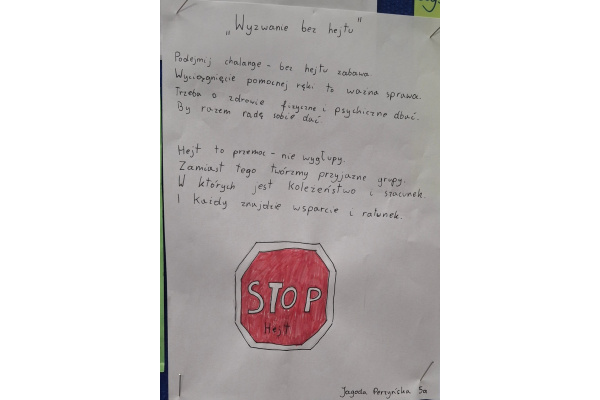 „Wyzwanie bez hejtu"
Podejmij chalange - bez hejtu zabawa.
Wyciągnięcie pomocnej ręki to ważna sprawa.
Trzeba o zdrowie fizyczne i psychiczne dbać.
By razem radę sobie dać.
Hejt to przemoc - nie wygłupy.
Zamiast tego twórzmy przyjazne grupy.
W których jest koleżeństwo i szacunek.
I każdy znajdzie wsparcie i ratunek.
STOP
Hejt
Jagoda Perzyńska 5a